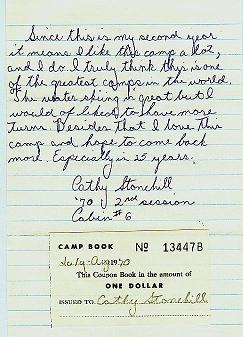 Since this is my second year
it means I like this camp a lot,
and I do. I truly think this is one
of the greatest camps in the world.
The water skiing is great but I
would of liked to have more
turns. Besides that I love this
camp and hope to come back
more. Especially in 25 years.
Cathy Stonehill
'70 2nd session
Cabin #6
CAMP BOOK No 13447B
July-Aug 1970
This Coupon Book in the amount of
ONE DOLLAR
ISSUED TO Cathy Stonehill